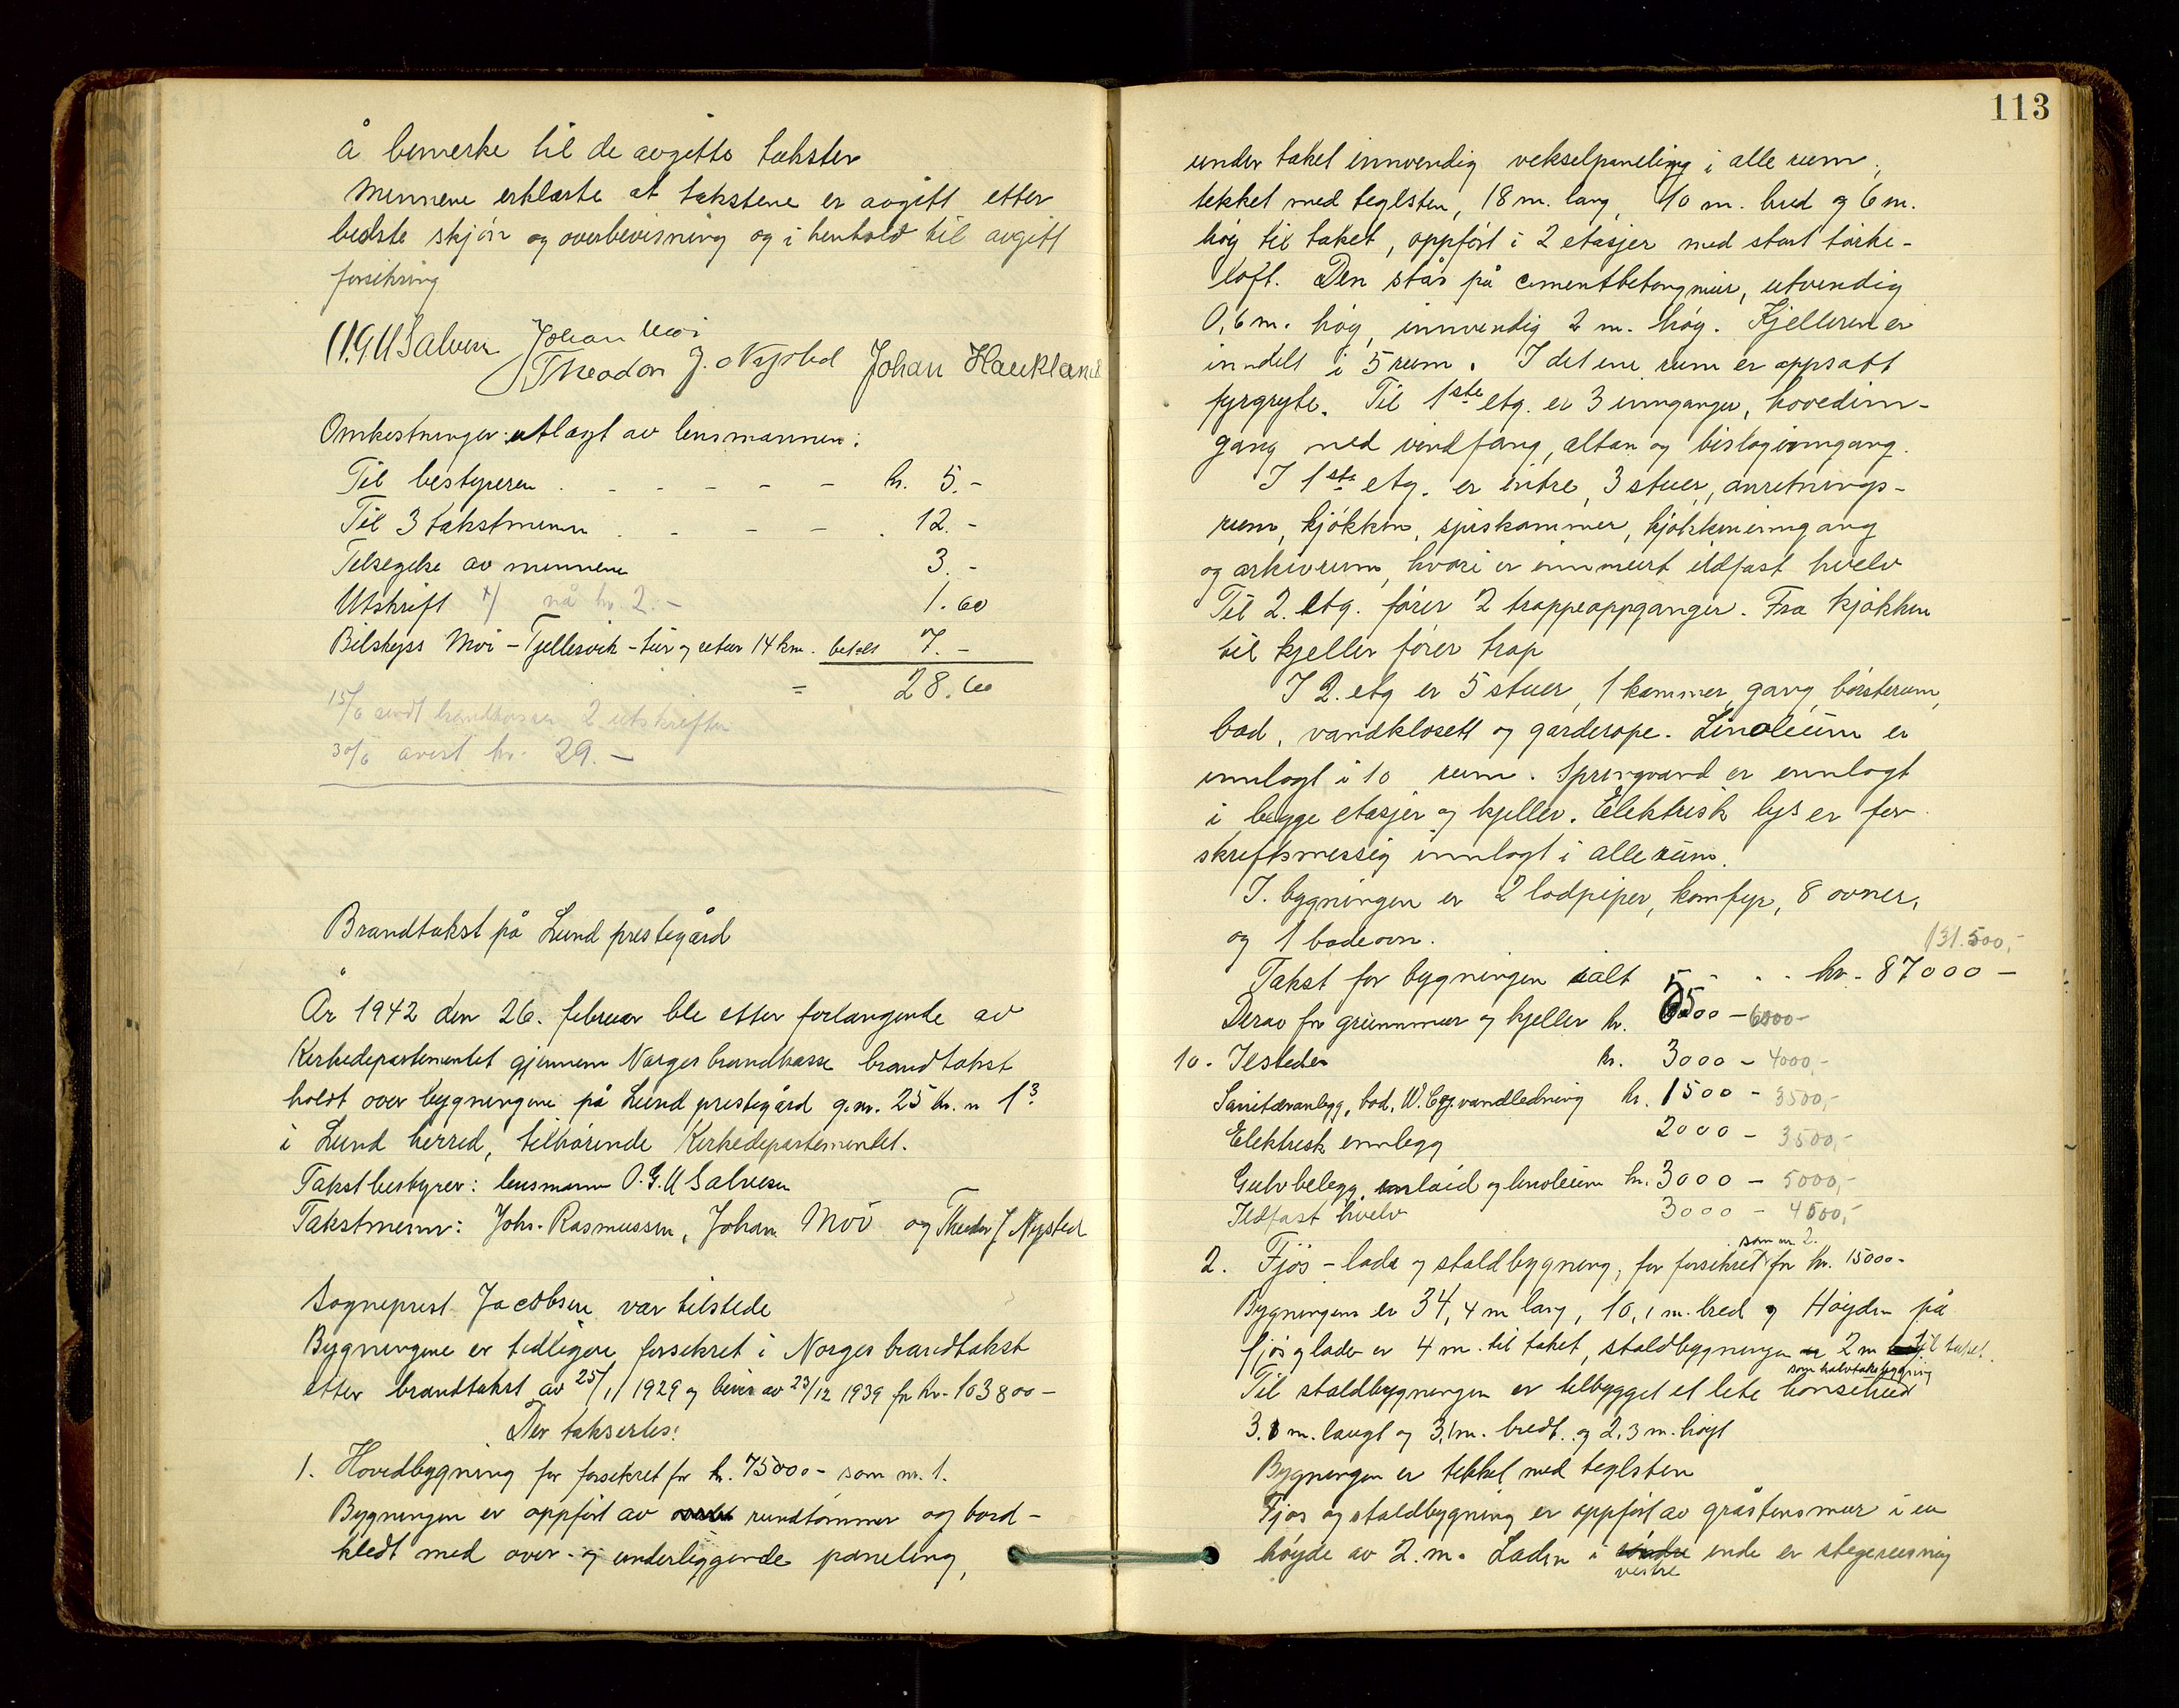 å bemerke til de avgitte takster
Mennene erklærte at takstene er avgitt etter
bedste skjön og overbevisning og i henhold til avgitt
forsikring
O.G.U Salvesen Johan Moi
Theodor J. Nysted Johan Haukland
Omkostninger utlagt av lensmannen:
Til bestyreren . - - - - - kr. 5.-
Til 3 takstmenn . - - - . 12.-
Tilsigelse av mennene 3.-
Utskrift x) nå kr. 2.- 1.60
Bilskyss Moi - Tjellesvik - tur og retur 14 km. betalt 7.-
= 28.60
15/6 sendt brandkassen 2 utskrifter
30/6 avist kr. 29.-
Brandtakst på Lund prestegård
År 1942 den 26. februar ble etter forlangende av
Kirkedepartementet gjennem Norges brandkasse brandtakst
holdt over bygningene på Lund prestegård g.nr. 25 br. n 1³
i Lund herred, tilhörende Kirkedepartementet.
Takstbestyrer: lensmann O.G.U Salvesen
Takstmenn: Johs. Rasmussen, Johan Moi og Theodor J Nysted
Sogneprest Jacobsen var tilstede
Bygningene er tidligere forsikret i Norges brandtakst
etter brandtakst av 25/11 1929 og bevis av 23/12 1939 for kr. 103800-
Der takseres:
1. Hovedbygning för forsikret for kr. 75000- som nr. 1.
Bygningen er oppfört av rundtömmer og bord-
kledt med over- og underliggende paneling,
113
under taket innvendig vekselpaneling i alle rum,
tekket med teglsten, 18 m. lang, 10 m. bred og 6 m.
höy til taket, oppfört i 2 etasjer med stort törke-
loft. Den står på cementbetongmur, utvendig
0,6 m. höy, innvendig 2 m. höy. Kjelleren er
inndelt i 5 rum. I det ene rum er oppsatt
fyrgryte. Til 1ste etg. er 3 innganger, hovedinn-
gang med vindfang, altan og bislaginngang.
I 1ste etg. er entre, 3 stuer, anretnings-
rum, kjökken, spiskammer, kjökkeninngang
og arkivrum, hvori er innmuret ildfast hvelv
Til 2. etg. förer 2 trappeoppganger. Fra kjökken
til kjeller förer trap
I 2. etg er 5 stuer, 1 kammer, gang, börsterum,
bad, vandklosett og garderope. Linoleum er
innlagt i 10 rum. Springvand er innlagt
i begge etasjer og kjeller. Elektrisk lys er for
skriftsmessig innlagt i alle rum.
I. bygningen er 2 lodpiper, komfyr, 8 ovner,
og 1 badeovn.
131.500,-
Takst for bygningen ialt - . . kr. 87000 -
Derav for grunnmur og kjeller kr. 5500 - 6000-
10. Ilsteder kr. 3000 - 4000,-
Sanitæranlegg, bad, W.C og vandledning kr. 1500 - 3500,-
Elektrisk innlegg 2000 - 3500,-
Gulvbelegg, inlaid og linoleum kr. 3000 - 5000,-
Ildfast hvelv 3000 - 4500,-
som nr 2.
2. Fjös - lade og staldbygning, för forsikret for kr. 15000-
Bygningene er 34,4 m lang, 10,1 m. bred og Höyden på
fjös og lade er 4 m. til taket, staldbygningen er 2 m til taket.
som halvtaksbygning
Til staldbygningen er tilbygget et lite hönsehus
3.1 m. langt og 3,1 m. bredt og 2,3 m. höyt
Bygningen er tekket med teglsten
Fjös og staldbygning er oppfört av gråstensmur i en
höyde av 2. m. Laden i ende er stegereisning
vestre